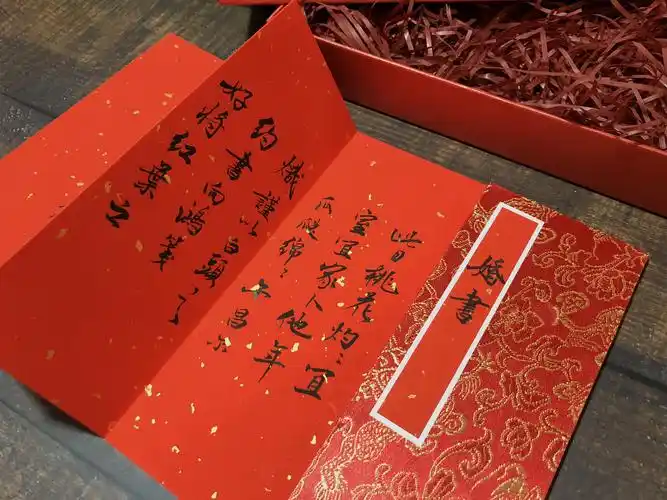 婚書
此日桃花灼〻宜
室宜家卜他年
瓜瓞綿〻尔昌尔
熾謹以白頭之
約書向鴻箋
好將紅葉之